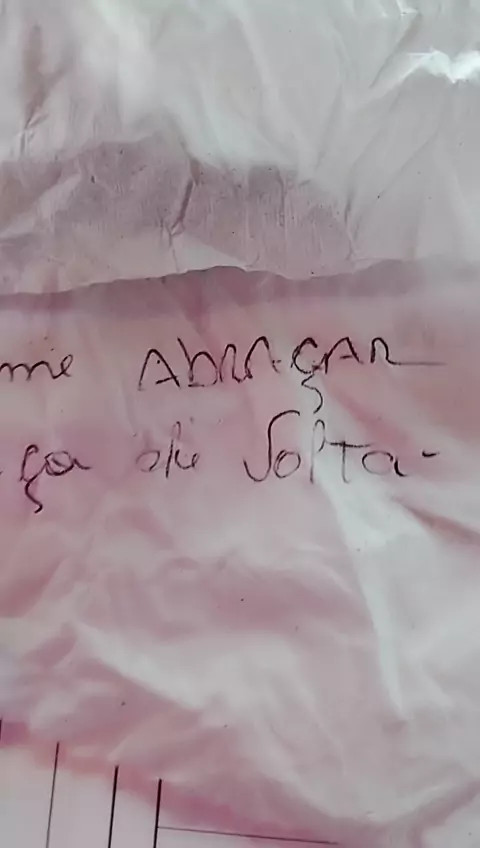 me ABRAÇAR
ça de volta-